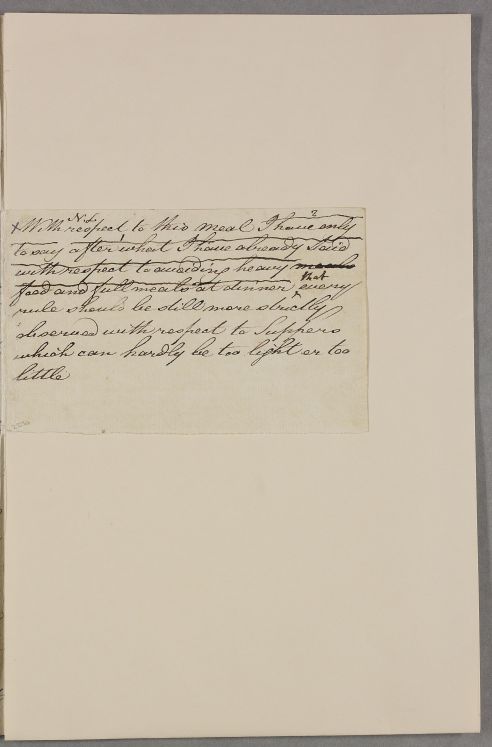 x With respect to this meal I have only
to say after what I have already said
with respect to avoiding heavy meals
food and full meals at dinner ^ that every
rule should be still more strictly
observed with respect to Suppers
which can hardly be too light or too
little